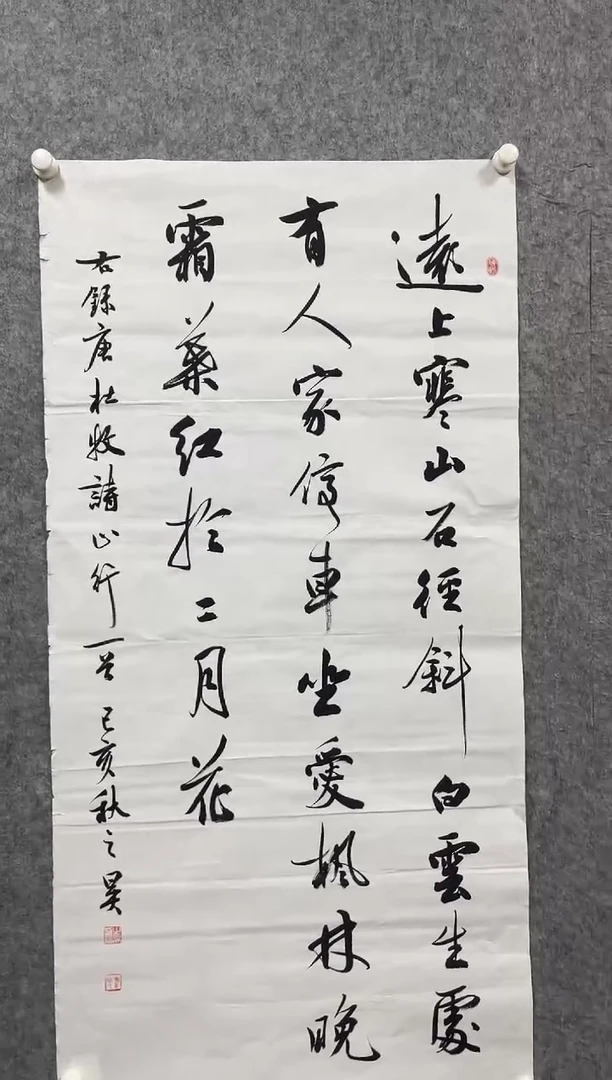 遠上寒山石徑斜白雲生處
有人家停車坐愛楓林晚
霜葉紅於二月花
右錄唐杜牧詩山行一首己亥秋之昊